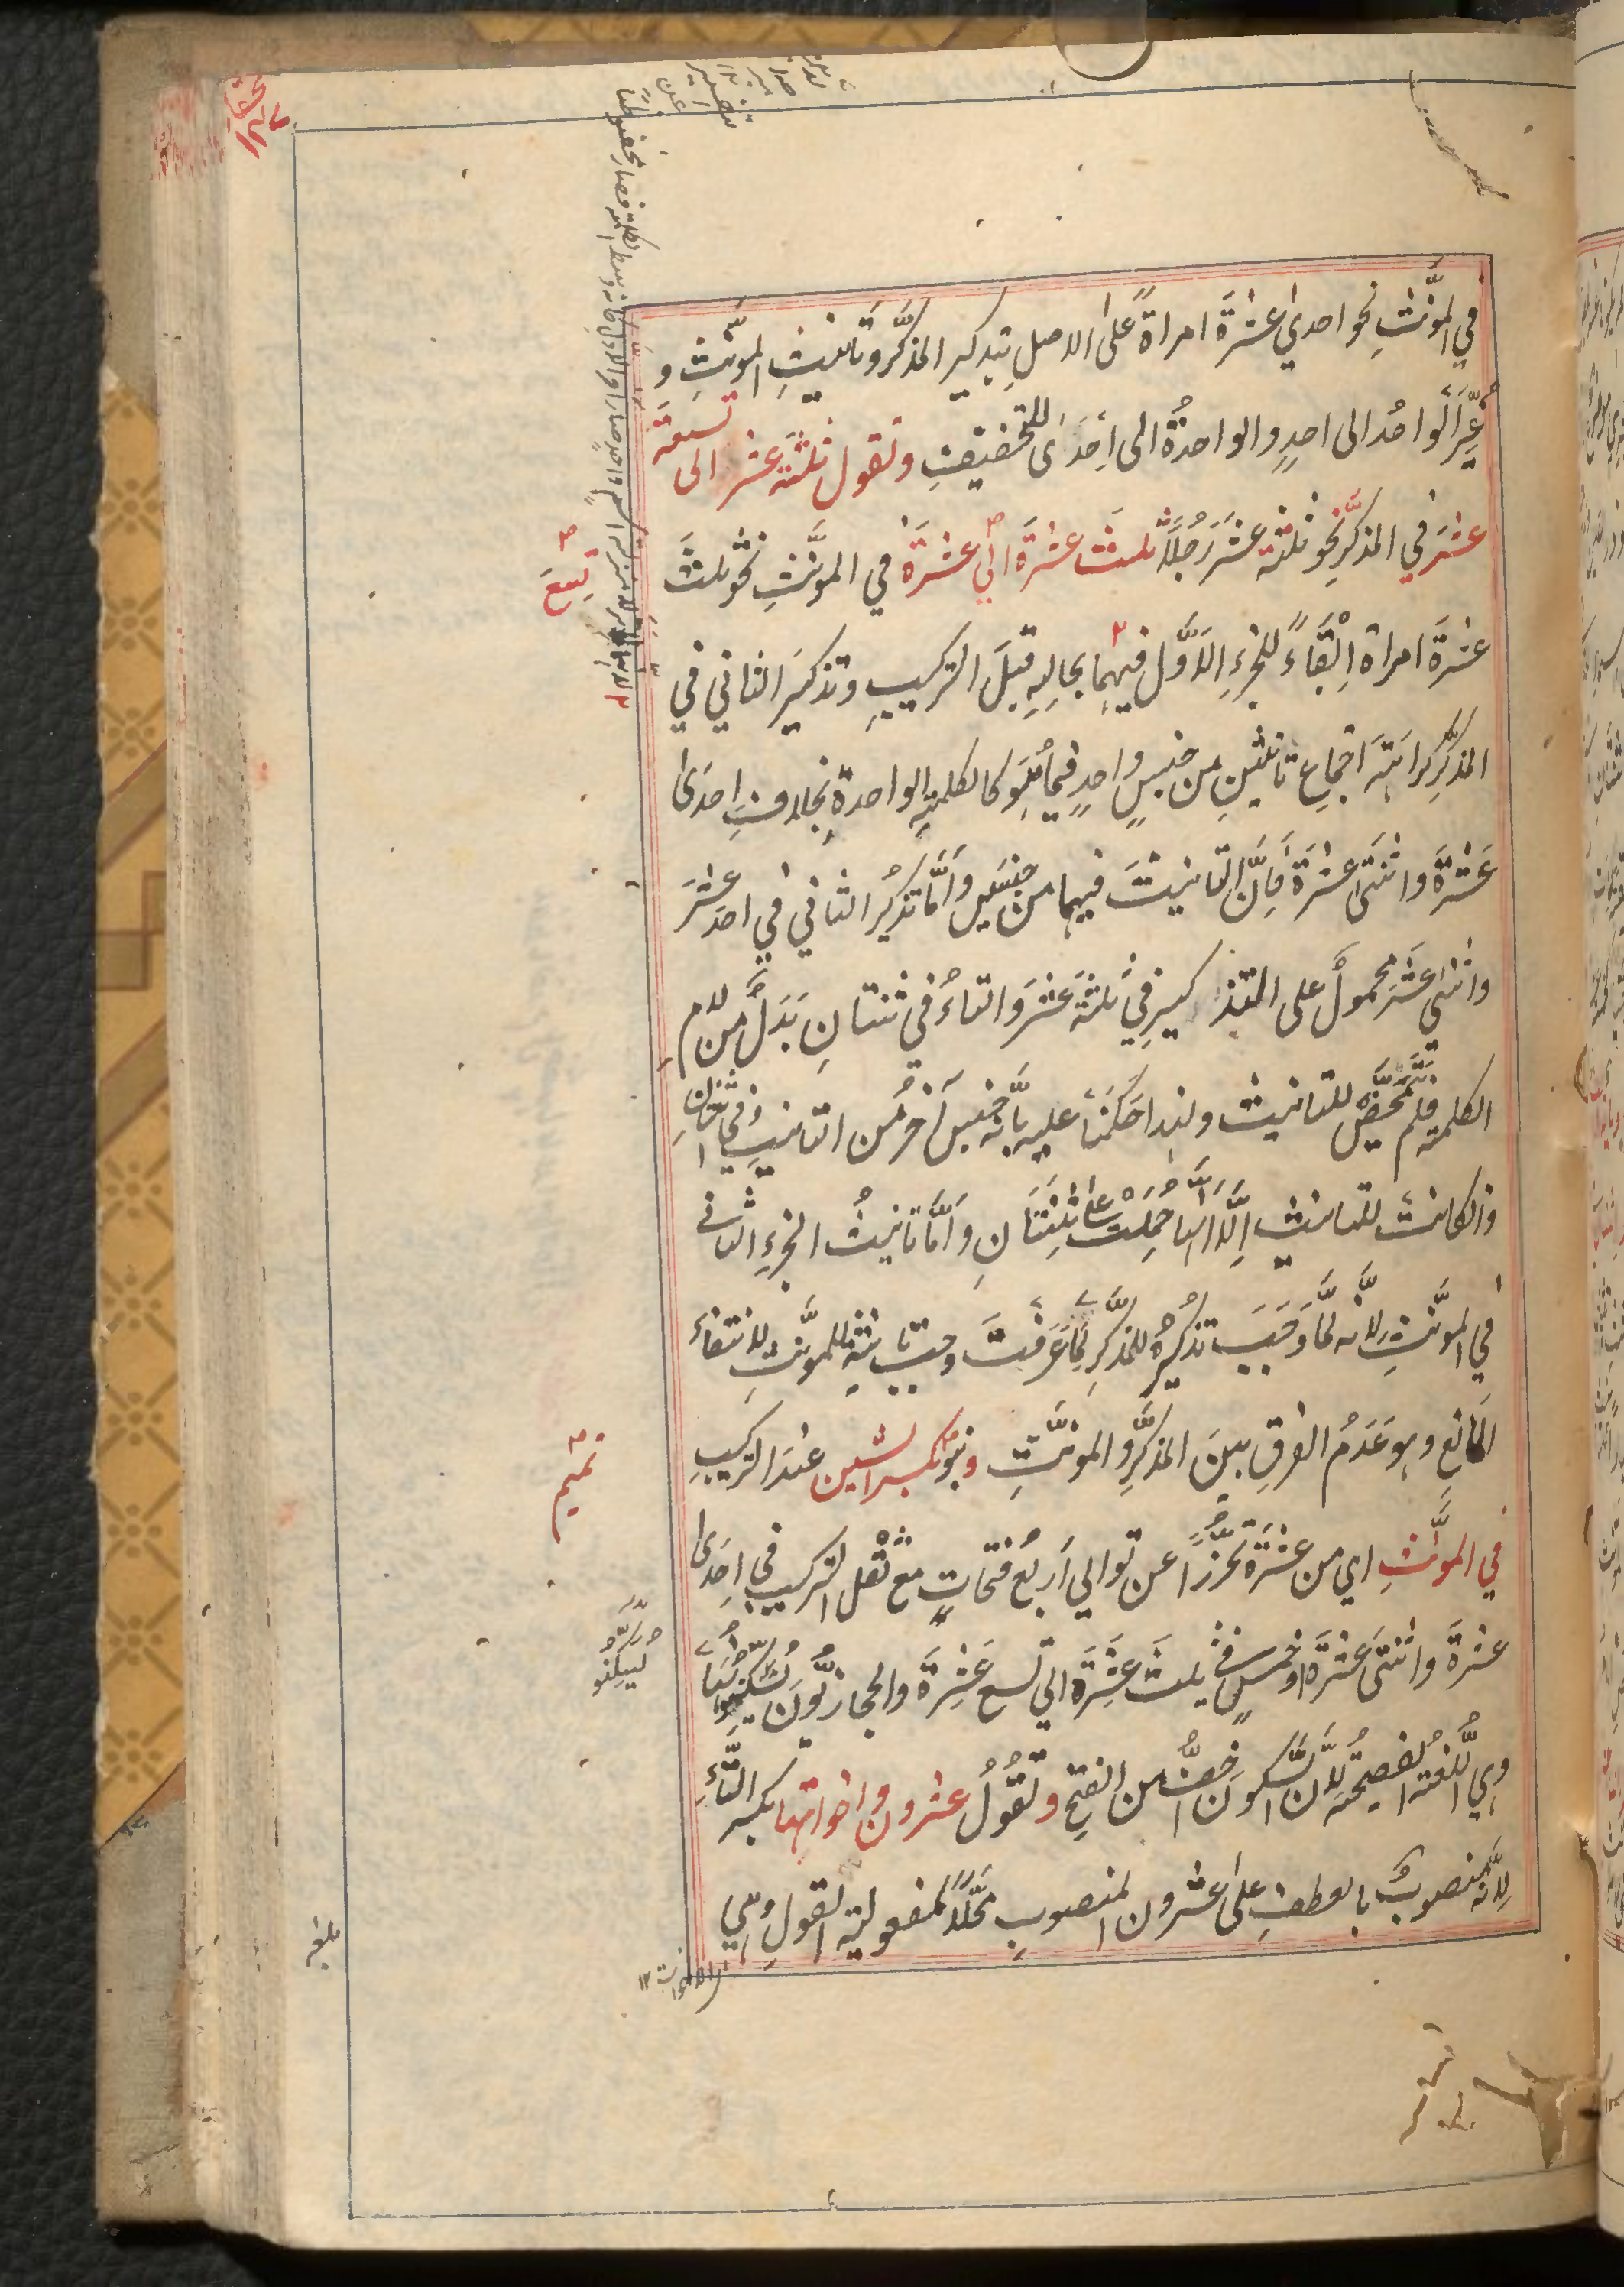 في المؤنّثِ نحو احدي عشرةَ امراةً على الاصلِ بتذكير المذكّر وتانيثِ المؤنّثِ و
غُيِّرَ الواحدُ الى احدٍ والواحدةُ الى اِحدَى للتخفيفِ وتقول ثلثةَ عشر الى تسعة
عشرَ في المذكّر نحو ثلثة عشَرَ رَجُلًا ثلثَ عشرةَ الي عشرةَ في المؤنّثِ نحو ثلثَ
عشرةَ امراة اِبْقَاءً للجزءِ الاوّل فيهما بحالِهِ قبلَ التركيبِ وتذكيرَ الثاني في
المذكّرِ كراهَتِهَ اجتماعِ تانيثين من جنسٍ واحدٍ فيما هُوَ كالكلمةِ الواحدةِ بخلافِ احدَى
عَشرةَ واثنَتَى عشرةَ فاِنَّ التانيثَ فيهما من جنسَينِ وامَّا تذكيرُ الثاني في احدَ عشرَ
واثنَي عشَرَ محمولٌ على التذكيرِ في ثلثةَ عشرَ والتاءُ في ثنتانِ بَدَلٌ من لامِ
الكلمةِ فلم تَتَمَحَّضْ للتانيث ولهذا حَكَمْنَا عليه بانّه جنسٌ آخرُ من التانيثِ وفي اثنتانِ
وان كانت للتانيث اِلّا انّها حُمِلَتْ على ثِنتَانِ وامّا تانيثُ الجزءِ الثاني
في المؤنّثِ لانّه لمَّا وَجَبَ تذكيرُهُ للمذكّرِ لِمَا عَرَفْتَ وجب تانيثُه للمؤنّثِ لانتفاءِ
المانعِ وهو عَدَمُ الفرقِ بينَ المذكّرِ والمؤنّثِ وبنو يكسر الشين عندَ التركيبِ
في المؤنّثِ اي من عشرَةَ تحرُّزًا عن توالي اَربعُ فتحاتٍ مع ثِقْل التركيب في احدَى
عشرةَ واثنتَى عشرَةَ او خمسٍ في ثلثَ عشَرَةَ الي تسع عَشِرَةَ والحجازيُّونَ يُسَكِّنُونَهَا
وهي اللّغةُ الفصيحةُ لانّ السّكونَ اَخفُّ من الفتحِ وتقُولُ عشرون واخواتها بكسر التّاءِ
لانّه منصوبٌ بالعطفِ على عشرون المنصوبِ مَحَلًّا لمفعوليّةِ القولِ وهي
تسعَ
تميم